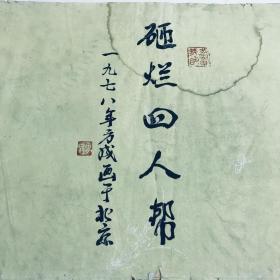 砸烂四人帮
一九七八年方成画于北京